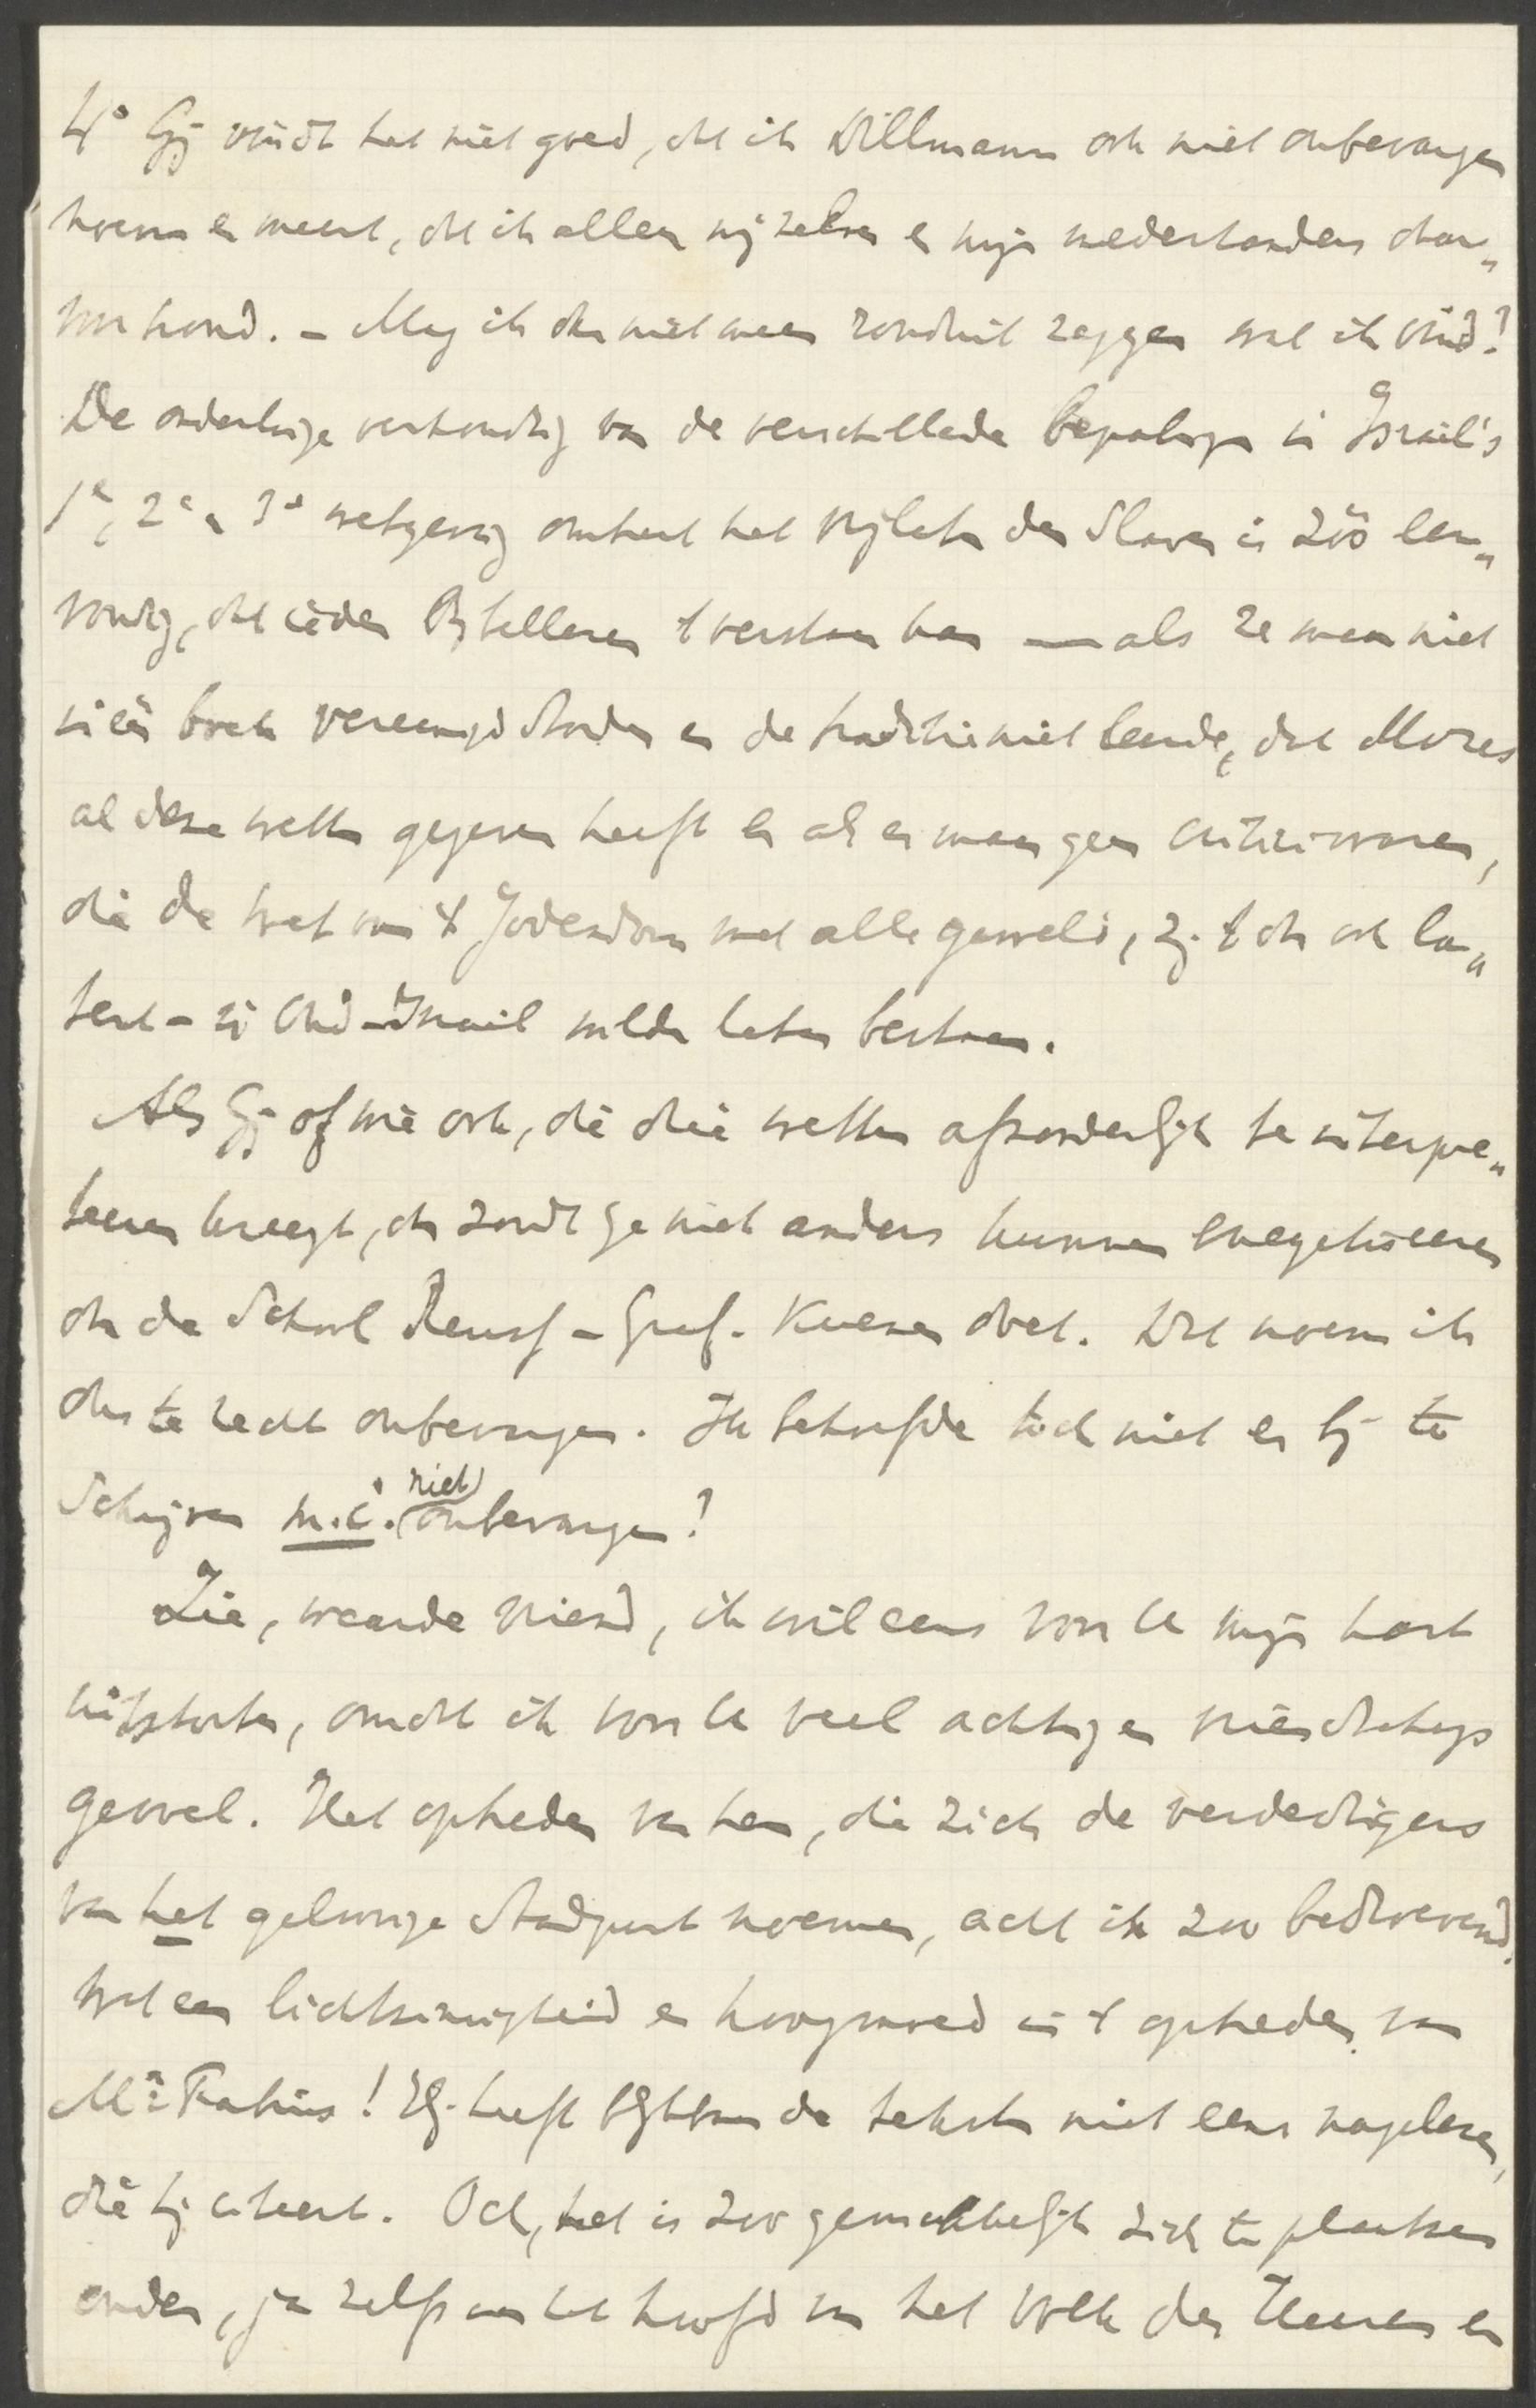 4° Gij vindt het niet goed, dat ik Dillmann ook niet onbevangen
noem en meent, dat ik alleen mij zelven en mijn medestanders daar„
voor houd. – Mag ik dan niet meer ronduit zeggen wat ik vind?
De onderlinge verhouding van de verschillende bepalingen in Israël's
1e, 2e en 3e wetgeving omtrent het vrijlaten der slaven is zóó een„
voudig, dat ieder Bijbellezer 't verstaan kan — als ze maar niet
in één boek vereenigd stonden en de traditie niet leerde, dat Mozes
al deze wetten gegeven heeft en als er maar geen critici waren,
die de wet van 't Jodendom met alle geweld, zij 't dan ook la„
tent – in Oud-Israël wilden laten bestaan.
Als Gij of wie ook, die drie wetten afzonderlijk te interpre„
teeren kreegt, dan zoudt ge niet anders kunnen exegetiseeren
dan de School Reuss – Graf – Kuenen doet. Dat noem ik
dus te recht onbevangen. Ik behoefde toch niet er bij te
schrijven m.i. niet onbevangen?
Zie, waarde vriend, ik wil eens voor U mijn hart
uitstorten, omdat ik voor U veel achting en vriendschap
gevoel. Het optreden van hen, die zich de verdedigers
van het geloovige standpunt noemen, acht ik zoo bedroevend.
Wat een lichtzinnigheid en hoogmoed in 't optreden van
Mr Fabius! Hij heeft blijkbaar de teksten niet eens nagelezen,
die hij citeert. Och, het is zoo gemakkelijk zich te plaatsen
onder, ja zelfs aan het hoofd van het volk des Heeren en